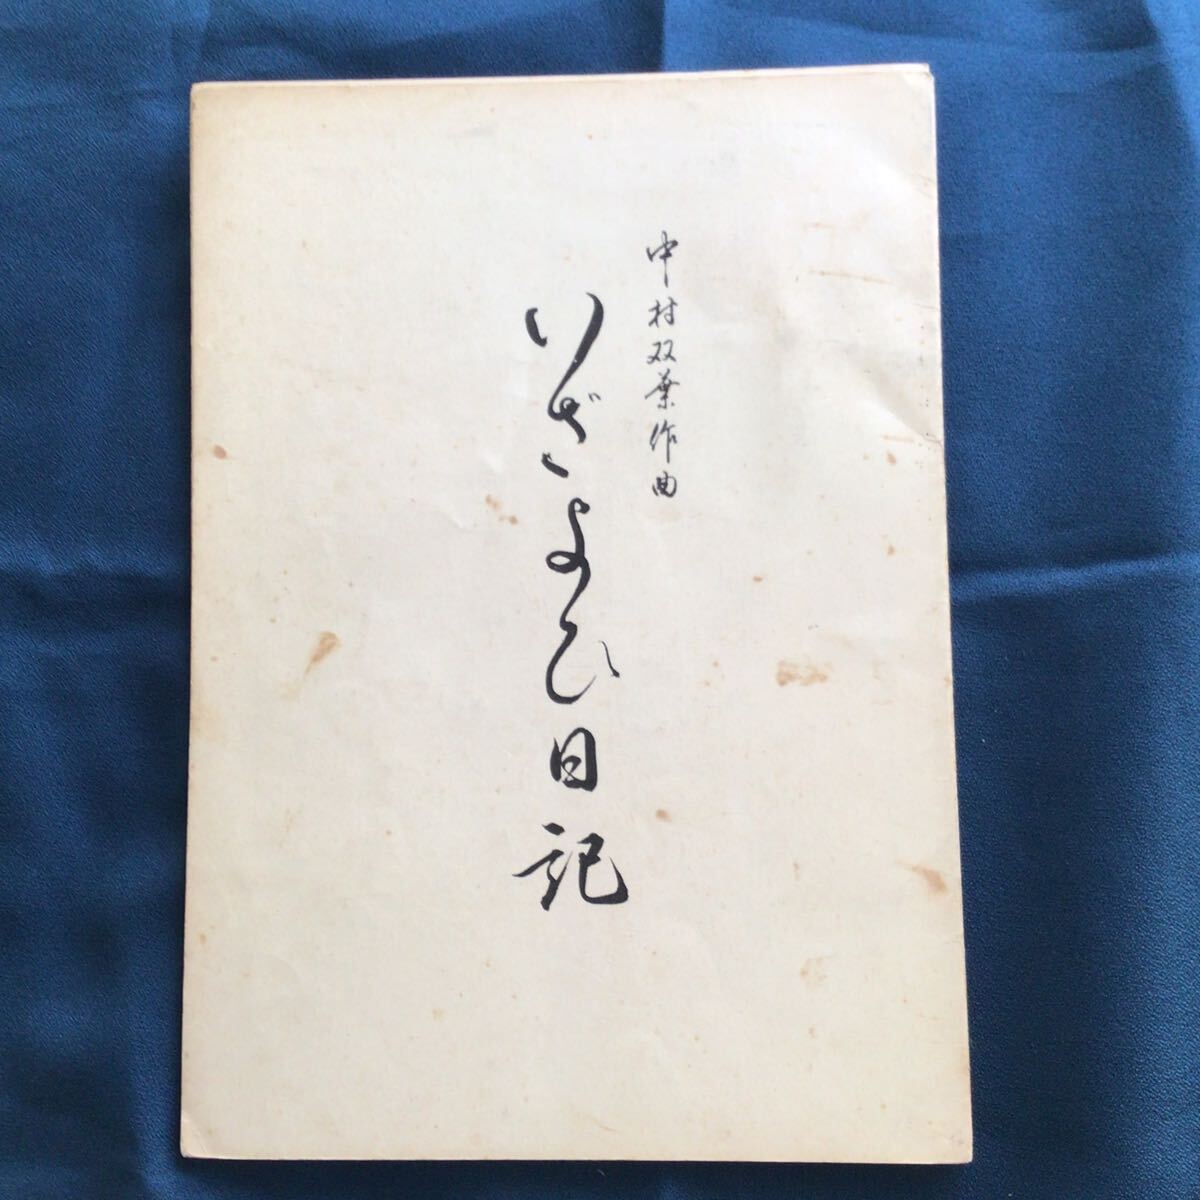 中村双葉作曲
いざよひ日記